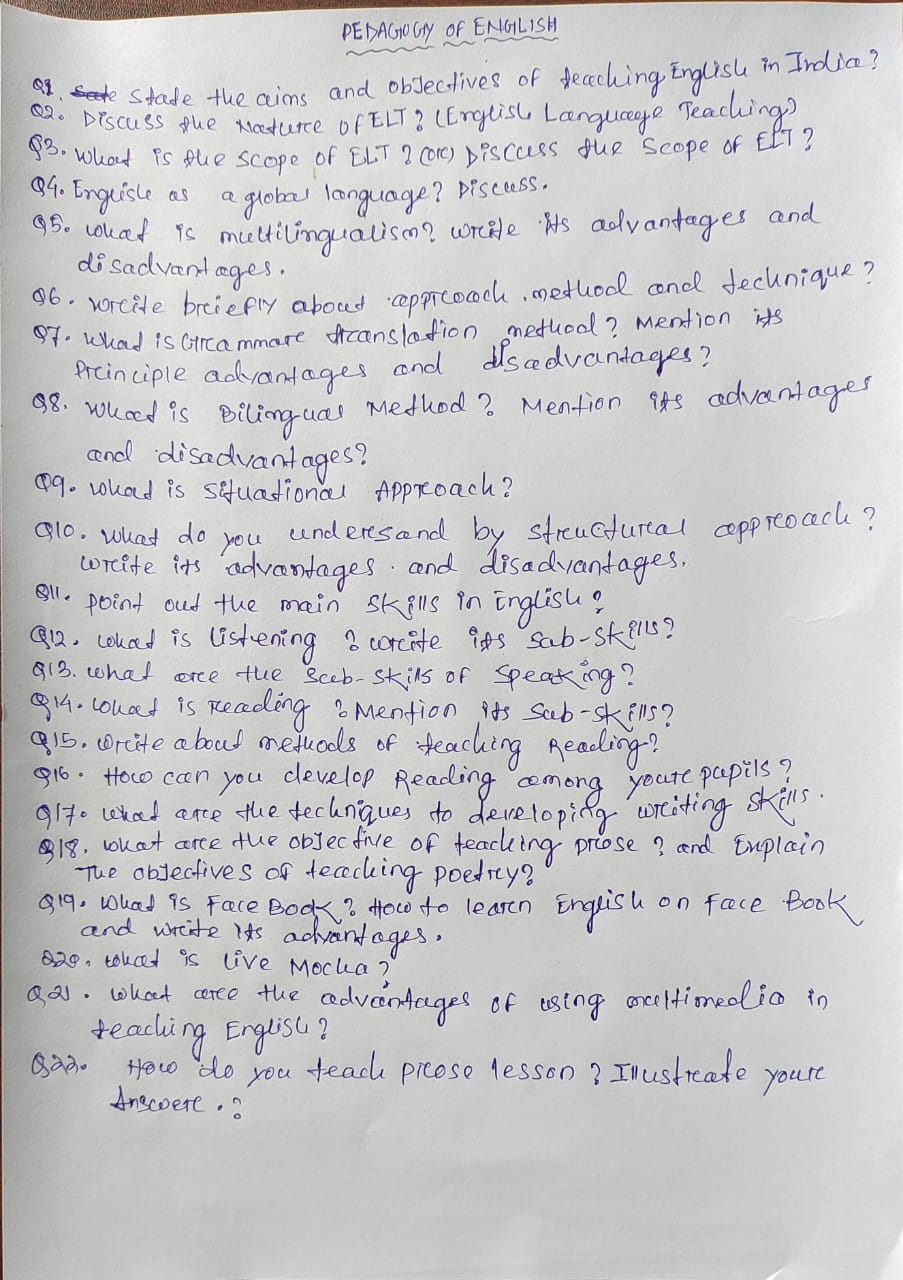 PEDAGOGY OF ENGLISH
Q1. State the aims and objectives of teaching English in India?
Q2. Discuss the Nature of ELT? (English Language Teaching)
Q3. What is the scope of ELT? (or) Discuss the Scope of ELT?
Q4. English as a global language? Discuss.
Q5. What is multilingualism? write its advantages and
disadvantages.
Q6. write briefly about approach, method and technique?
Q7. What is Grammare translation method? Mention its
Principle advantages and disadvantages?
Q8. What is Bilingual Method? Mention its advantages
and disadvantages?
Q9. What is Situational Approach?
Q10. What do you undersand by structural approach?
write its advantages and disadvantages.
Q11. point out the main skills in English?
Q12. What is listening? write its Sab-skills?
Q13. What are the Sub-skills of Speaking?
Q14. What is Reading? Mention its Sub-skills?
Q15. Write about methods of teaching Reading?
Q16. How can you develop Reading among your pupils?
Q17. What are the techniques to developing writing skills.
Q18. What are the objective of teaching prose? and Explain
The objectives of teaching poetry?
Q19. What is Face Book? How to learn English on Face Book
and write Its advantages.
Q20. What is Live Mocha?
Q21. What are the advantages of using multimedia in
teaching English?
Q22. How do you teach prose lesson? Illustrate your
Answere.?